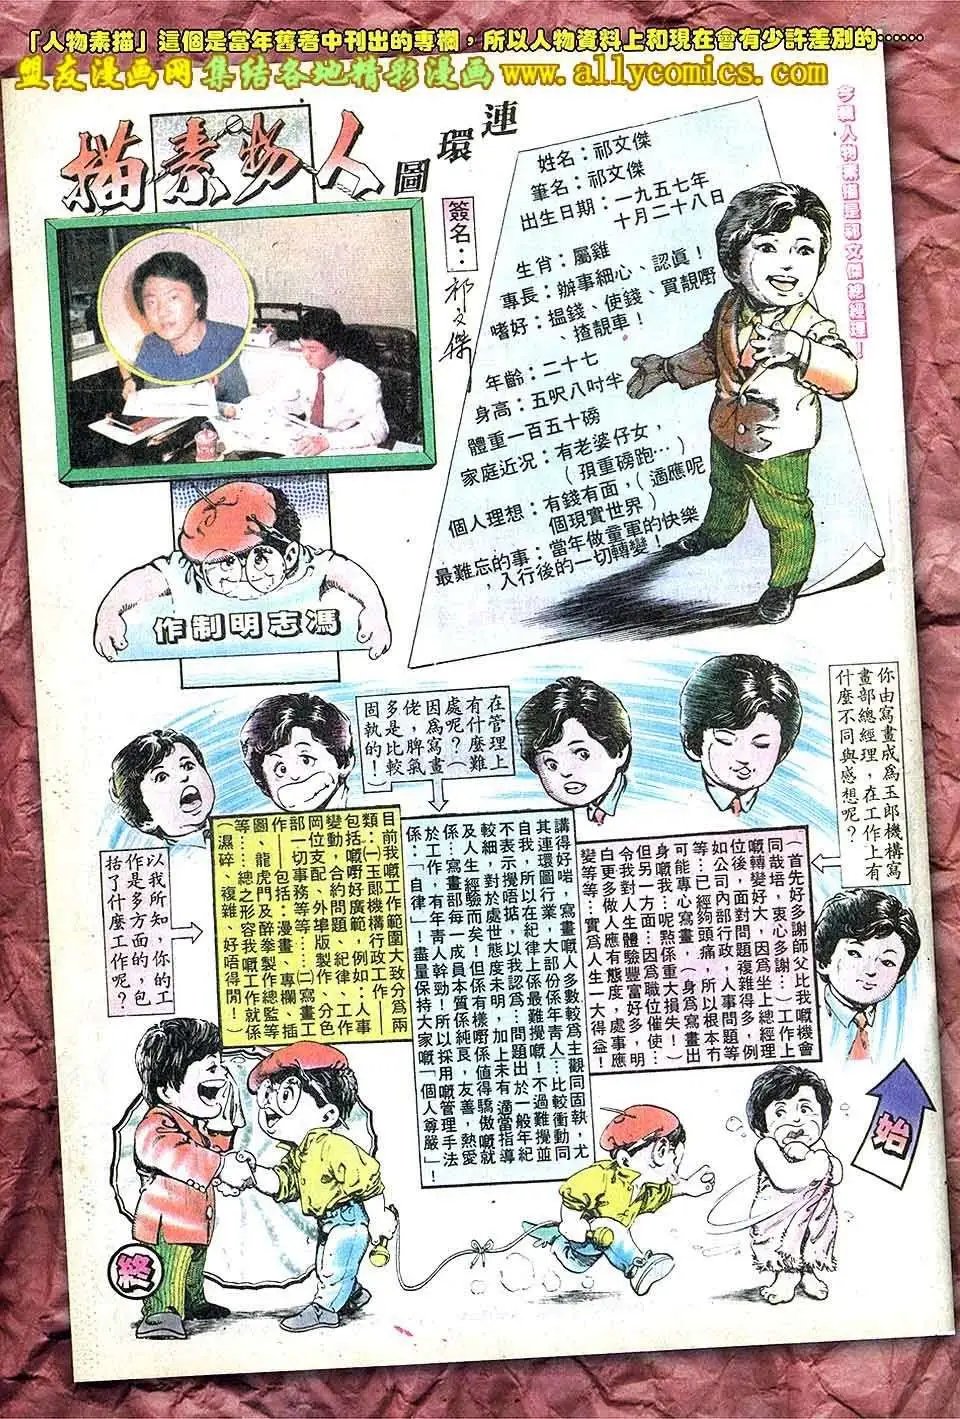 「人物素描」這個是當年舊著中刊出的專欄，所以人物資料上和現在會有少許差別的⋯⋯
盟友漫画网 集结各地精彩漫画 www.allycomics.com
連環圖
人物素描
今輯人物素描是祁文傑總經理！
姓名：祁文傑
筆名：祁文傑
出生日期：一九五七年
十月二十八日
生肖：屬雞
專長：辦事細心、認眞！
嗜好：搵錢、使錢、買靚嘢
、揸靚車！
年齡：二十七
身高：五呎八吋半
體重一百五十磅
家庭近況：有老婆仔女，
（孭重磅跑…）
個人理想：有錢有面，（適應呢
個現實世界）
最難忘的事：當年做童軍的快樂
，入行後的一切轉變！
簽名：
祁文傑
馮志明制作
始
你由寫畫成為玉郎機構寫
畫部總經理，在工作上有
什麼不同與感想呢？
（首先好多謝師父比我嘅機會
同哉培，衷心多謝…）工作上
嘅轉變好大，因為坐上總經理
位後，面對問題複雜得多，例
如公司內部行政，人事問題等
等…已經夠頭痛，所以根本冇
可能專心寫畫，（身為寫畫出
身嘅我…呢點係重大損失！）
但另一方面…因為職位催使…
令我對人生體驗豐富好多，明
白更多做人應有態度，處事應
變等等…實為人生一大得益！
在管理上
有什麼難
處呢？（
因為寫畫
佬，脾氣
多是比較
固執的！）
講得好啱，寫畫嘅人多數較為主觀同固執，尤
其連環圖行業，大部份係年靑人…比較衝動同
自我，所以在紀律上係最難攪嘅！不過難攪並
不表示攪唔掂，以我認為…問題出於一般年紀
較細，對於處世態度未明，加上未有適當指導
及人生經驗而矣！但係有樣嘢係值得驕傲嘅就
係…寫畫部每一成員本質係純良，友善，熱愛
於工作，有年靑人幹勁！所以採用嘅管理手法
係「自律」！盡量保持大家嘅「個人尊嚴」！
以我所知，你的工
作是多方面的，包
括了什麼工作呢？
目前我嘅工作範圍大致分為兩
類：㈠玉郎機構行政工作——
包括嘅嘢好廣範，例如…人事
變動，合約問題、紀律、工作
岡位支配、外埠版製作、分色
部一切事務等等…㈡寫畫工
作——包括：漫畫、專欄、插
圖、龍虎門及醉拳製作總監等
等……總之形容我嘅工作就係
（濕碎、複雜、好唔得閒！）
終